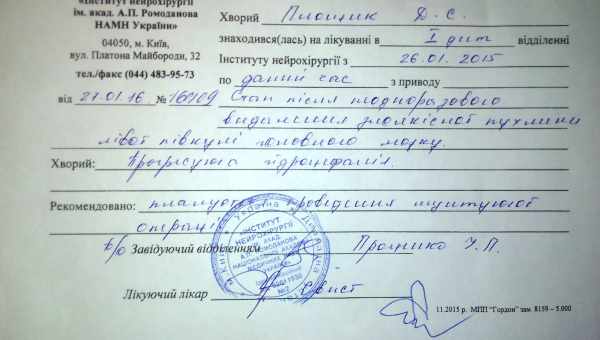 «Інститут нейрохірургії
ім. акад. А.П. Ромоданова
НАМН України»
04050, м. Київ,
вул. Платона Майбороди, 32
тел./факс (044) 483-95-73
від 27.01.16 №
Хворий Площик Д. С.
знаходився(лась) на лікуванні в I дит відділенні
Інституту нейрохірургії з 26.01.2015
по даний час з приводу
Стан після неодноразового
видалення злоякісної пухлини
лівої півкулі головного мозку.
Хворий: Прогресуюча гідроцефалія.
Рекомендовано: планується проведення шунтуючої
операції
в/о Завідуючий відділенням Процико У.П.
Лікуючий лікар Свист
ІНСТИТУТ
НЕЙРОХІРУРГІЇ
ІМ. АКАД.
А.П. РОМОДАНОВА
УКРАЇНИ
11.2015 р. МПП "Гордон" зам. 8159 – 5.000